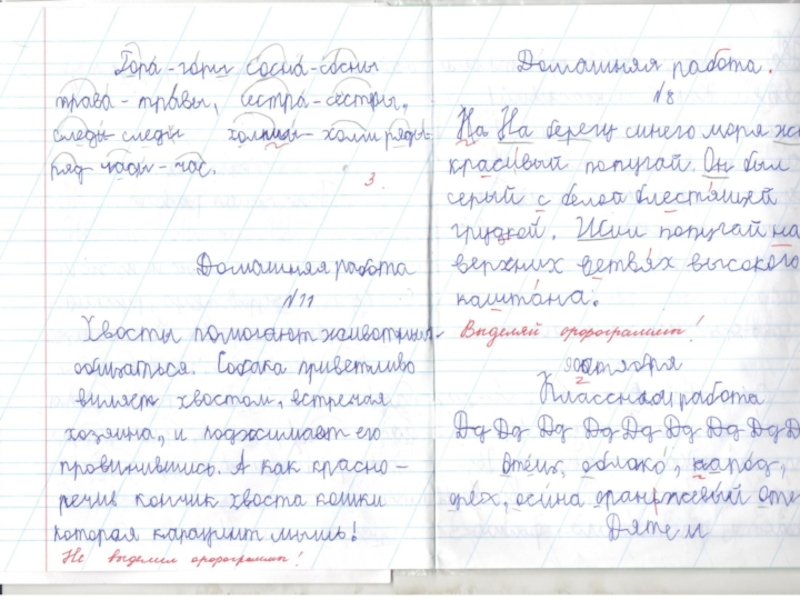 Гора-горы сосна-сосны
трава-травы, сестра-сестры,
следы-следы холмы-холм ряды-
ряд часы-час.
3.
Домашняя работа
№11
Хвосты помогают животным
общаться. Собака приветливо
виляет хвостом, встречая
хозяина, и поджимает его
провинившись. А как красно-
речив кончик хвоста кошки
которая караулит мышь!
Не выделил орфограммы!
Домашняя работа.
№8
На На берегу синего моря
красивый попугай. Он был
серый с белой блестящей
грудкой. Жил попугай на
верхних ветвях высокого
каштана.
Выделяй орфограммы!
октября
Классная работа
Дд Дд Дд Дд Дд Дд Дд Дд
Отец, облако, народ,
орех, осина оранжевый
Дятел